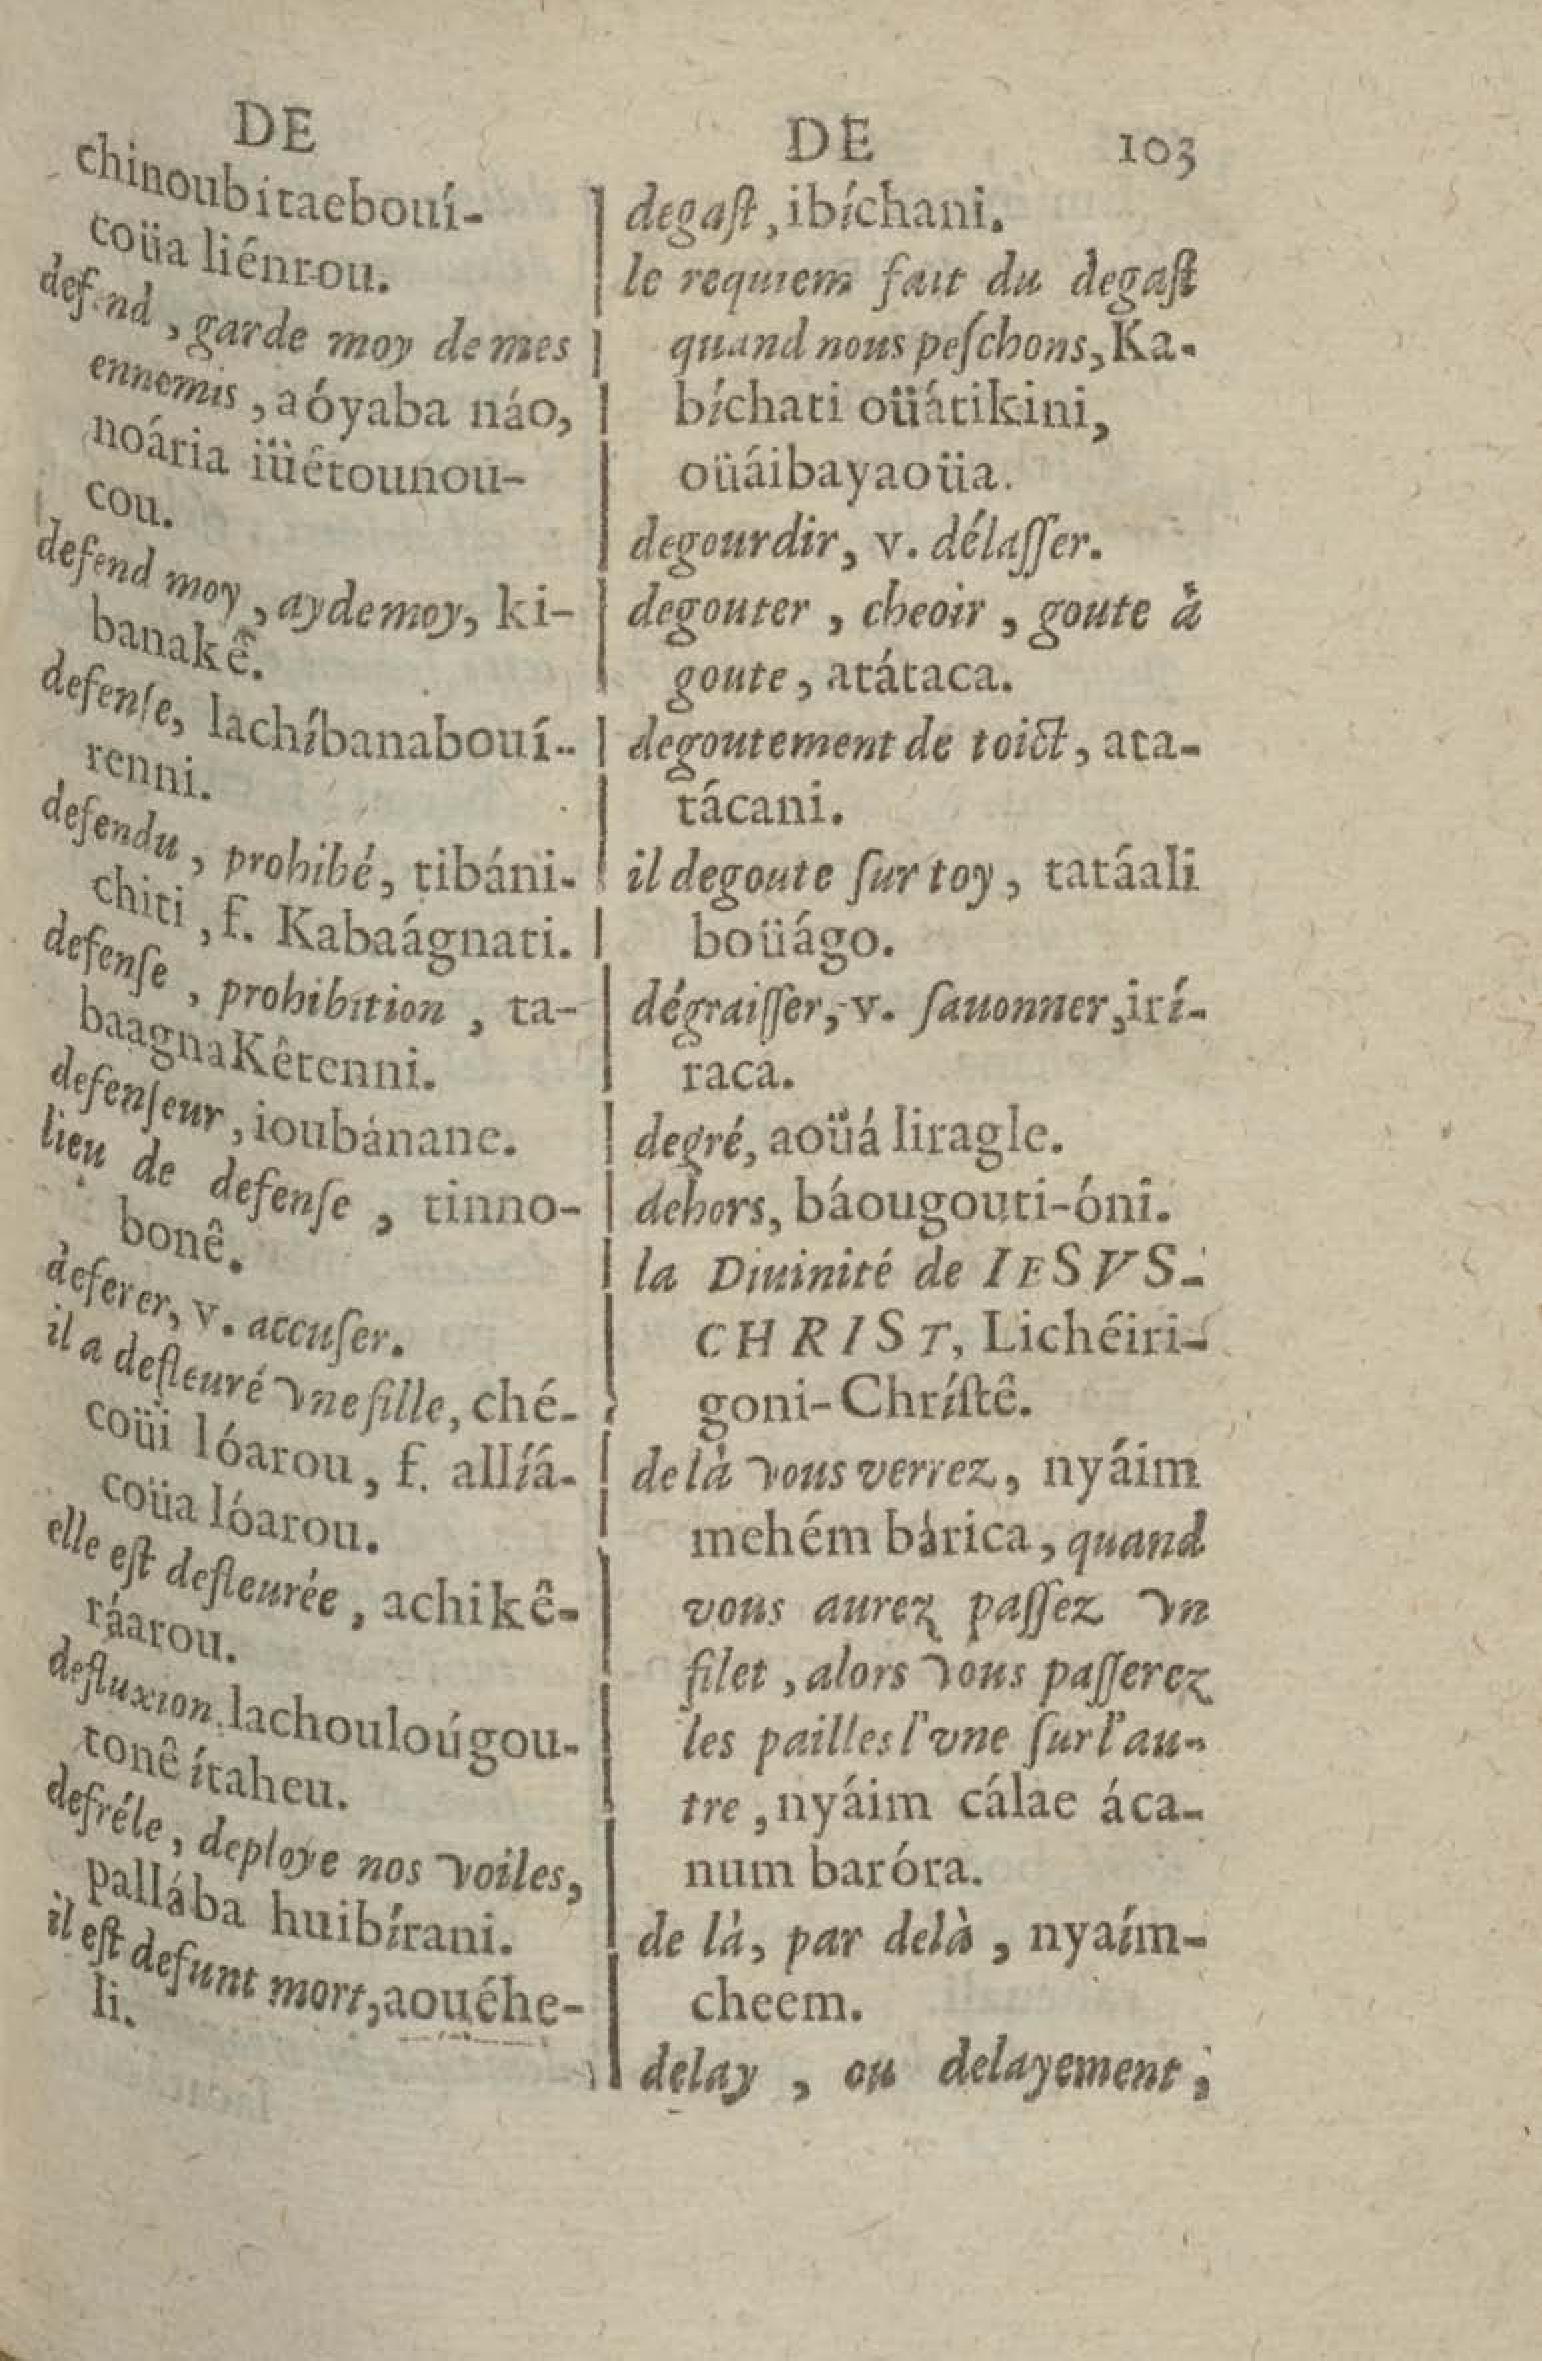 DE
chinoubitaebouí-
coüa liénrou.
defend, garde moy de mes
ennemis, aóyaba náo,
noária iüétounou-
cou.
defend moy, aydemoy, ki-
banakê.
defenſe, lachíbanabouí-
renni.
defendu, prohibé, tibáni-
chiti, f. Kabaágnati.
defenſe, prohibition, ta-
baagnaKêtenni.
defenſeur, ioubánane.
lieu de defenſe, tinno-
bonê.
deferer, v. accuſer.
il a defleuré vne fille, ché-
coüi lóarou, f. allíá-
coüa lóarou.
elle eſt defleurée, achikê-
ráarou.
defluxion, lachouloúgou-
tonê ítaheu.
defréle, deploye nos voiles,
pallába huibírani.
il eſt defunt mort, aouéhe-
li.
DE 103
degaſt, ibíchani.
le requiem fait du degaſt
quand nous peſchons, Ka-
bíchati oüátikini,
oüáibayaoüa.
degourdir, v. délaſſer.
degouter, cheoir, goute à
goute, atátaca.
degoutement de toict, ata-
tácani.
il degoute ſur toy, tatáali
boüágo.
dégraiſſer, v. ſauonner, irí-
raca.
degré, aoüá liragle.
dehors, báougouti-óni.
la Diuinité de IESVS-
CHRIST, Lichéiri-
goni-Chríſtê.
de là vous verrez, nyáim
mehém bárica, quand
vous aurez paſſez vn
filet, alors vous paſſerez
les pailles l'vne ſur l'au-
tre, nyáim cálae áca-
num baróra.
de là, par delà, nyaím-
cheem.
delay, ou delayement,